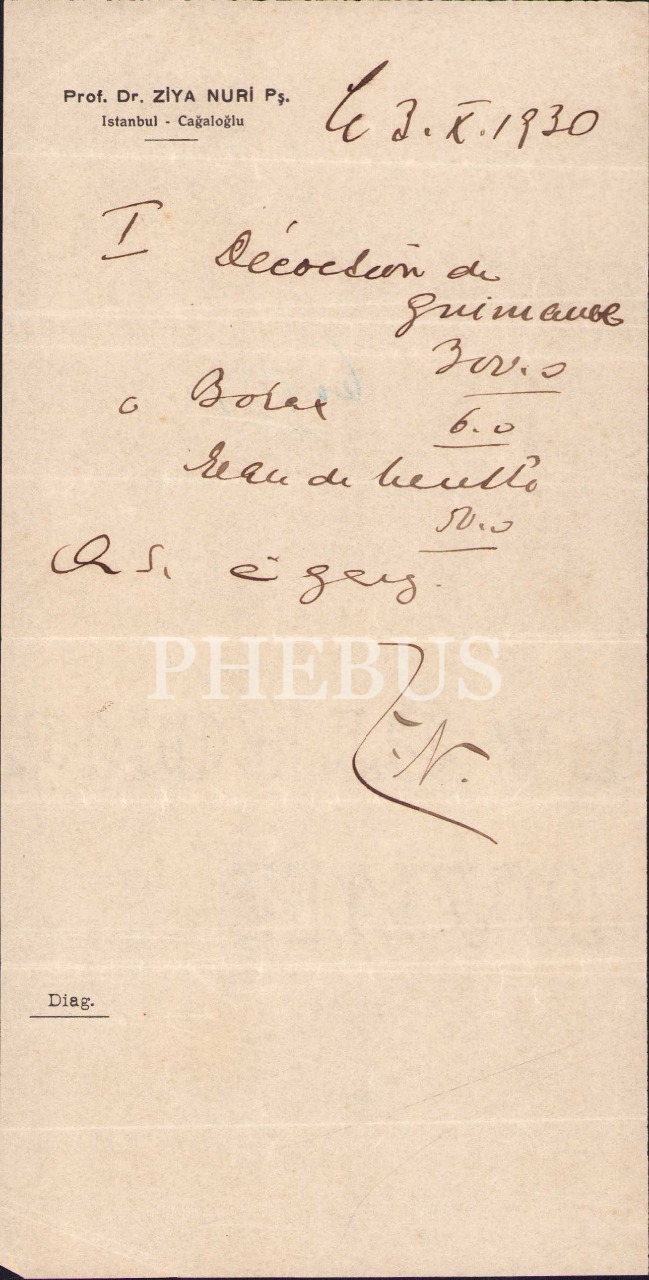 Prof. Dr. ZİYA NURİ Pş.
Istanbul - Cağaloğlu
Le 3. X. 1930
I
Décoction de
guimauve
300.0
o Borax
6.0
Eau de
50.0
S. garg.
PHEBUS
Z.N.
Diag.